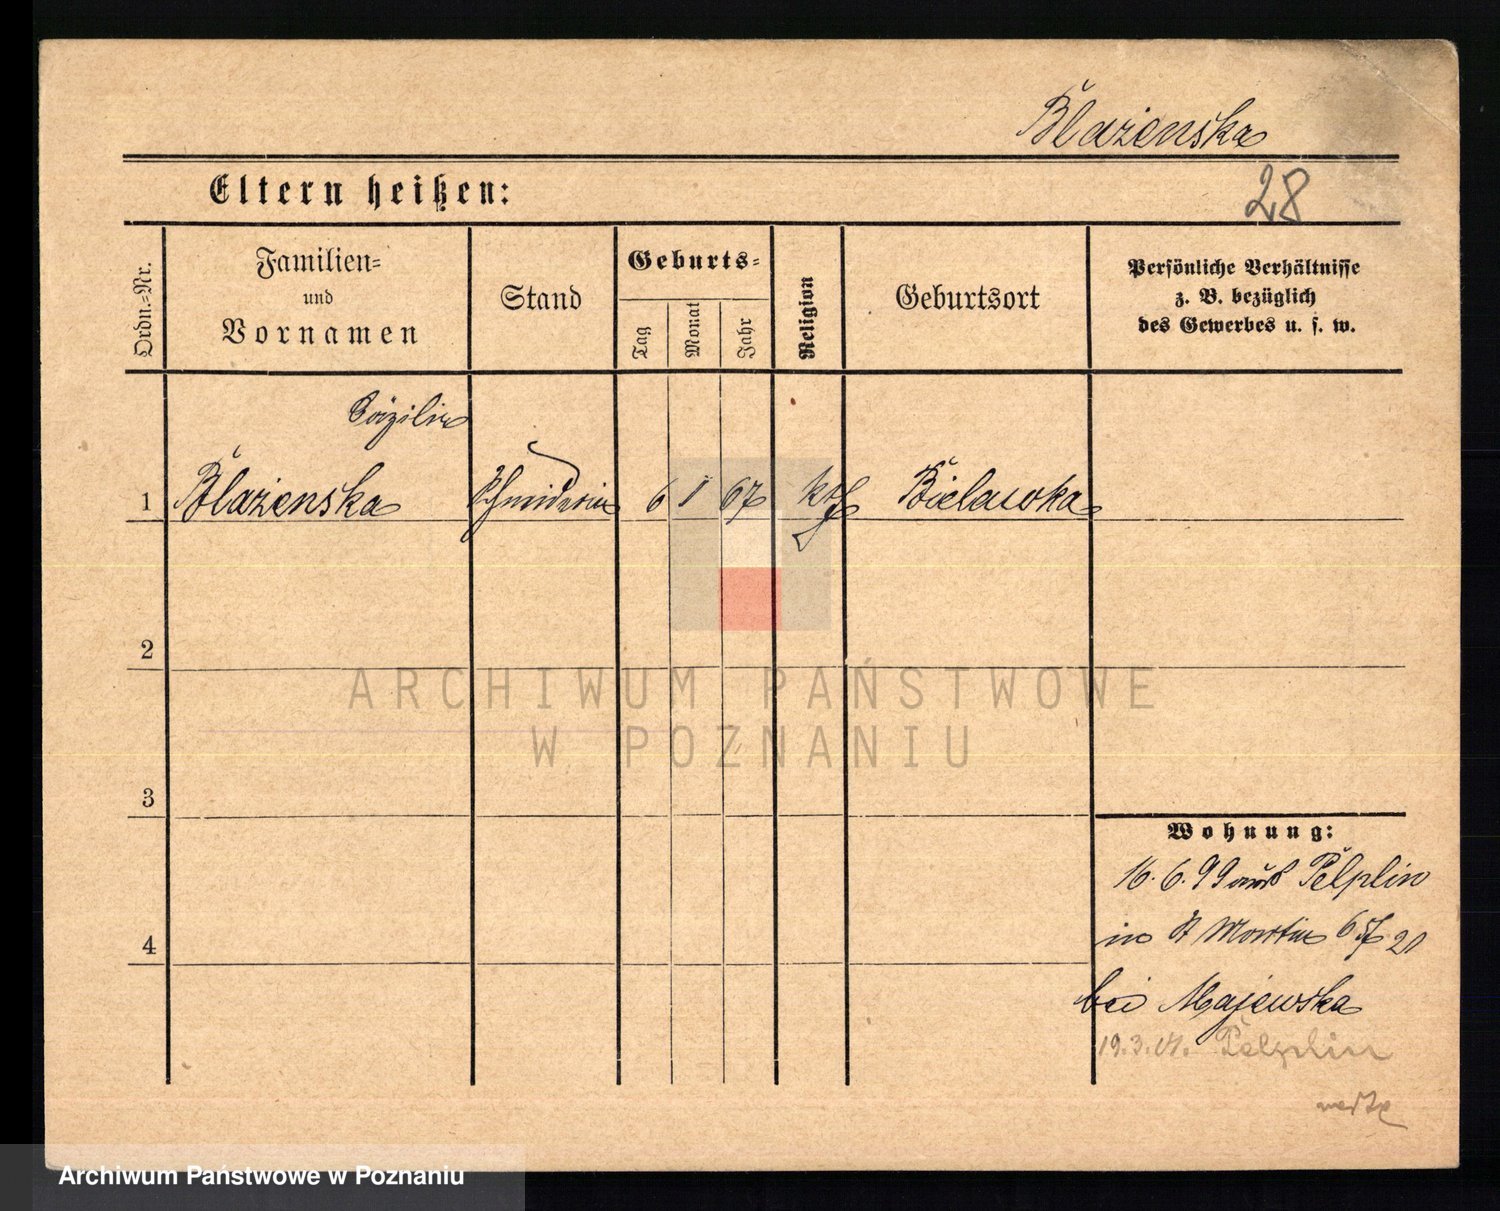 Blażenska
Eltern heißen:
28
Ordn.-Nr.
Familien-
und
Vornamen
Stand
Geburts-
Tag
Monat
Jahr
Religion
Geburtsort
Persönliche Verhältnisse
z. B. bezüglich
des Gewerbes u. s. w.
Cäzilie
1 Blażenska Schneiderin 6 1 67 kth Bielawka
2
ARCHIWUM PAŃSTWOWE
W POZNANIU
3
Wohnung:
16. 6. 99 aus Pelplin
in St Martin 65/ 21
4
bei Majewska
19. 3. 01. Pelplin
Archiwum Państwowe w Poznaniu